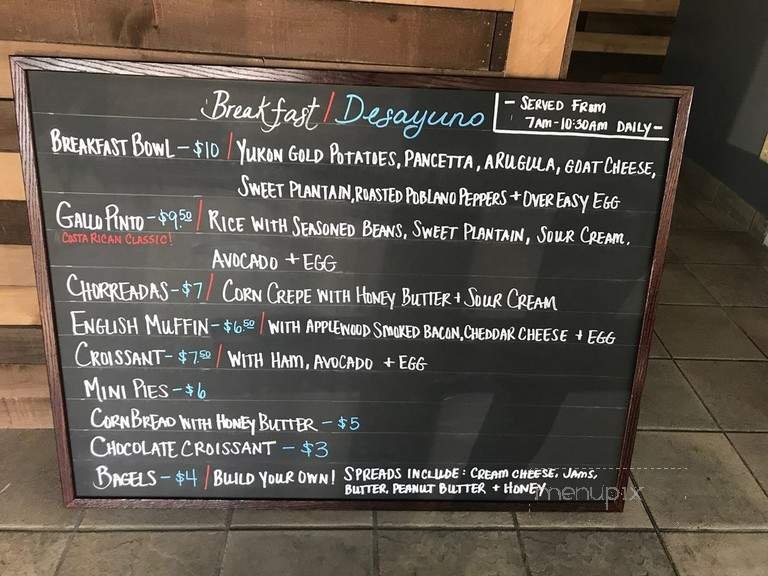 Breakfast / Desayuno
- SERVED FROM
7AM-10:30AM DAILY-
BREAKFAST BOWL - $10 / YUKON GOLD POTATOES, PANCETTA, ARUGULA, GOAT CHEESE,
SWEET PLANTAIN, ROASTED POBLANO PEPPERS + OVER EASY EGG
GALLO PINTO - $9.50 / RICE WITH SEASONED BEANS, SWEET PLANTAIN, SOUR CREAM,
COSTA RICAN CLASSIC!
AVOCADO + EGG
CHORREADAS - $7 / CORN CREPE WITH HONEY BUTTER + SOUR CREAM
ENGLISH MUFFIN - $6.50 / WITH APPLEWOOD SMOKED BACON, CHEDDAR CHEESE + EGG
CROISSANT - $7.50 / WITH HAM, AVOCADO + EGG
MINI PIES - $6
CORNBREAD WITH HONEY BUTTER - $5
CHOCOLATE CROISSANT - $3
BAGELS - $4 / BUILD YOUR OWN! SPREADS INCLUDE: CREAM CHEESE, JAMS,
BUTTER, PEANUT BUTTER + HONEY
menupix